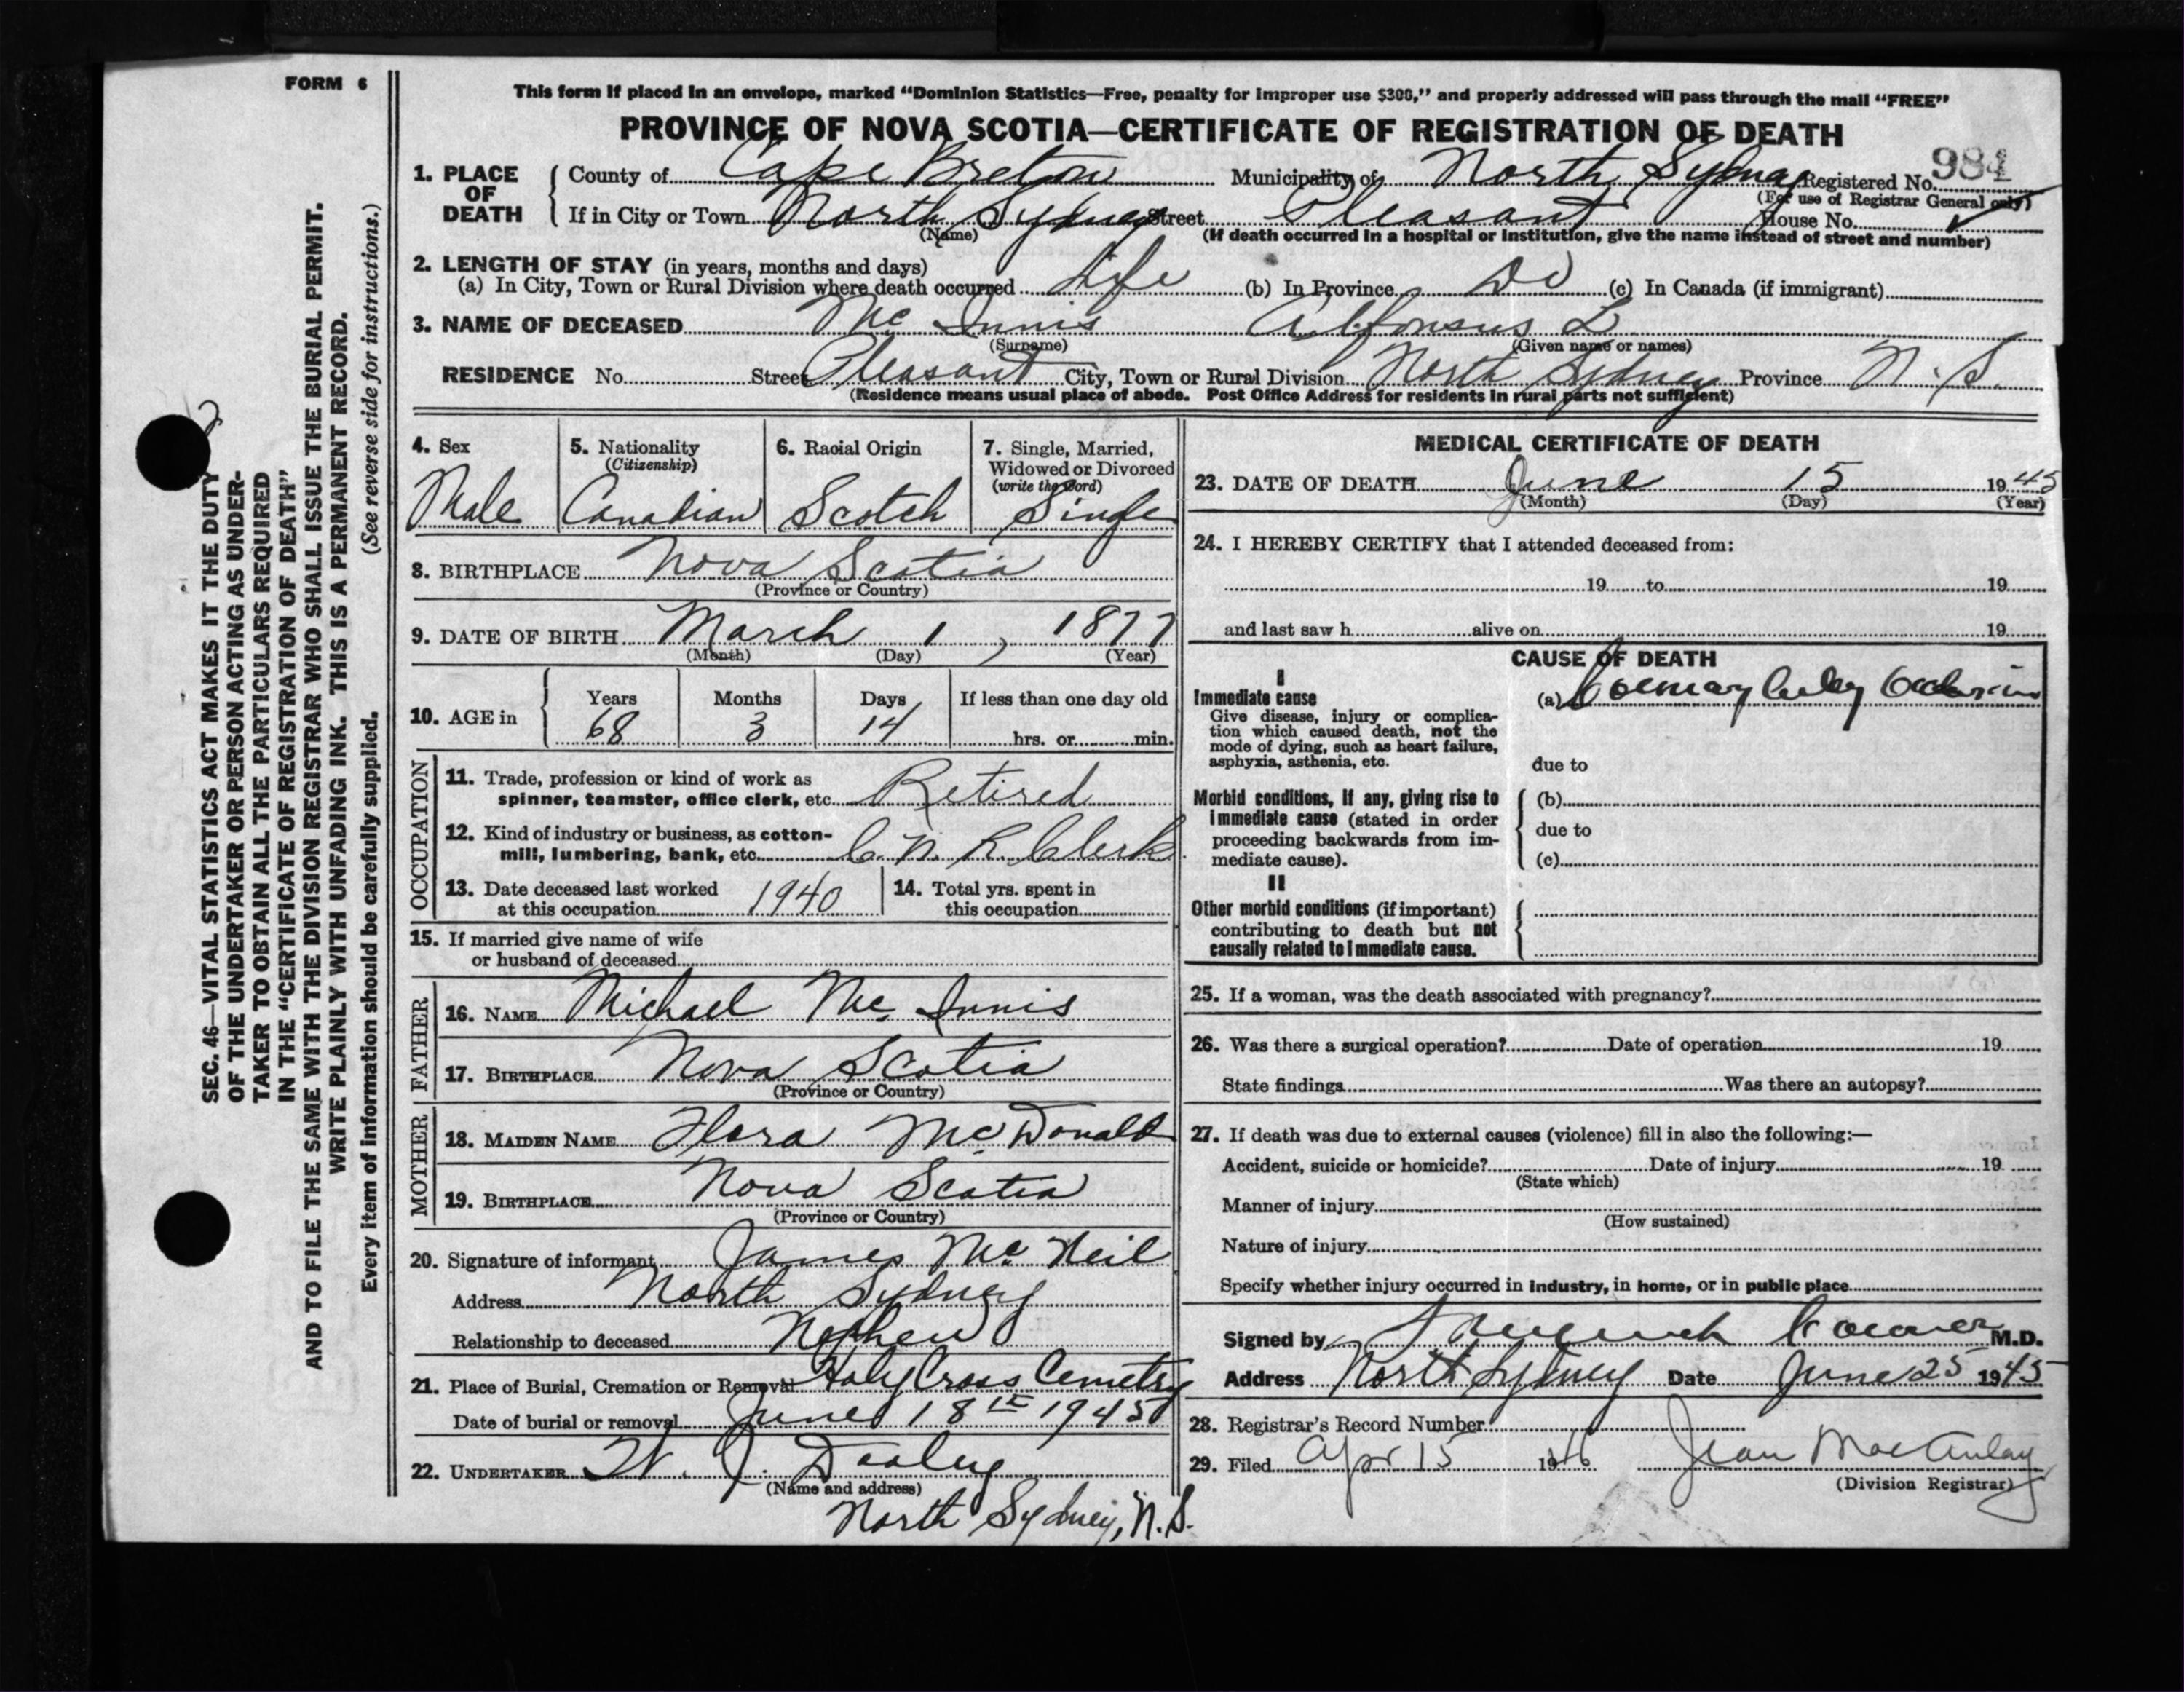 FORM 6
This form if placed in an envelope, marked "Dominion Statistics—Free, penalty for improper use $300," and properly addressed will pass through the mail "FREE"
PROVINCE OF NOVA SCOTIA—CERTIFICATE OF REGISTRATION OF DEATH
1. PLACE OF DEATH
County of Cape Breton Municipality of North Sydney Registered No. 984
(For use of Registrar General only)
If in City or Town North Sydney Street Pleasant House No.
(Name) (If death occurred in a hospital or institution, give the name instead of street and number)
2. LENGTH OF STAY (in years, months and days)
(a) In City, Town or Rural Division where death occurred Life (b) In Province Do (c) In Canada (if immigrant)
3. NAME OF DECEASED Mc Innis Alfonsus L
(Surname) (Given name or names)
RESIDENCE No. Street Pleasant City, Town or Rural Division North Sydney Province N.S.
(Residence means usual place of abode. Post Office Address for residents in rural parts not sufficient)
SEC. 46—VITAL STATISTICS ACT MAKES IT THE DUTY
OF THE UNDERTAKER OR PERSON ACTING AS UNDER-
TAKER TO OBTAIN ALL THE PARTICULARS REQUIRED
IN THE "CERTIFICATE OF REGISTRATION OF DEATH"
AND TO FILE THE SAME WITH THE DIVISION REGISTRAR WHO SHALL ISSUE THE BURIAL PERMIT.
WRITE PLAINLY WITH UNFADING INK. THIS IS A PERMANENT RECORD.
Every item of information should be carefully supplied. (See reverse side for instructions.)
4. Sex
Male
5. Nationality
(Citizenship)
Canadian
6. Racial Origin
Scotch
7. Single, Married,
Widowed or Divorced
(write the word)
Single
8. BIRTHPLACE Nova Scotia
(Province or Country)
9. DATE OF BIRTH March 1, 1877
(Month) (Day) (Year)
10. AGE in
Years Months Days If less than one day old
68 3 14 hrs. or min.
OCCUPATION
11. Trade, profession or kind of work as
spinner, teamster, office clerk, etc. Retired
12. Kind of industry or business, as cotton-
mill, lumbering, bank, etc. C. N. R. Clerk
13. Date deceased last worked
at this occupation 1940
14. Total yrs. spent in
this occupation
15. If married give name of wife
or husband of deceased
FATHER
16. NAME Michael Mc Innis
17. BIRTHPLACE Nova Scotia
(Province or Country)
MOTHER
18. MAIDEN NAME Flora McDonald
19. BIRTHPLACE Nova Scotia
(Province or Country)
20. Signature of informant James McNeil
Address North Sydney
Relationship to deceased Nephew
21. Place of Burial, Cremation or Removal Holy Cross Cemetry
Date of burial or removal June 18th 1945
22. UNDERTAKER W. J. Dooley
(Name and address)
North Sydney, N.S.
MEDICAL CERTIFICATE OF DEATH
23. DATE OF DEATH June 15 1945
(Month) (Day) (Year)
24. I HEREBY CERTIFY that I attended deceased from:
19 to 19
and last saw h alive on 19
CAUSE OF DEATH
I
Immediate cause
Give disease, injury or complica-
tion which caused death, not the
mode of dying, such as heart failure,
asphyxia, asthenia, etc.
(a) Coronary Occlusion
due to
Morbid conditions, if any, giving rise to
immediate cause (stated in order
proceeding backwards from im-
mediate cause).
(b)
due to
(c)
II
Other morbid conditions (if important)
contributing to death but not
causally related to immediate cause.
25. If a woman, was the death associated with pregnancy?
26. Was there a surgical operation? Date of operation 19
State findings Was there an autopsy?
27. If death was due to external causes (violence) fill in also the following:—
Accident, suicide or homicide? Date of injury 19
(State which)
Manner of injury
(How sustained)
Nature of injury
Specify whether injury occurred in industry, in home, or in public place
Signed by Coroner M.D.
Address North Sydney Date June 25 1945
28. Registrar's Record Number
29. Filed Apr 15 1946 Jean MacAulay
(Division Registrar)